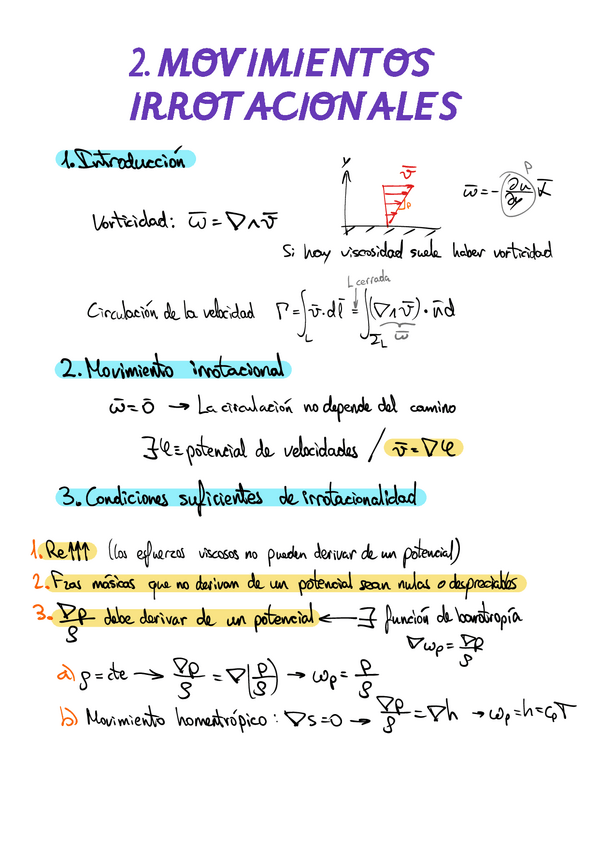 2. MOVIMIENTOS
IRROTACIONALES
1. Introducción
y v̄ P
P
Vorticidad: ω̄ = ∇∧v̄
ω̄ = - ∂u/∂y k̄
Si hay viscosidad suele haber vorticidad
L cerrada
Circulación de la velocidad Γ = ∫_L v̄·dl̄ = ∫_ΣL (∇∧v̄)·n̄d
ω̄
2. Movimiento irrotacional
ω̄ = 0̄ → La circulación no depende del camino
∃φ ≡ potencial de velocidades / v̄ = ∇φ
3. Condiciones suficientes de irrotacionalidad
1. Re↑↑↑ (los esfuerzos viscosos no pueden derivar de un potencial)
2. Fzas másicas que no derivan de un potencial sean nulas o despreciables
3. ∇p/ρ debe derivar de un potencial ← ∃ función de barotropía
∇ωp = ∇p/ρ
a) ρ = cte → ∇p/ρ = ∇(p/ρ) → ωp = p/ρ
b) Movimiento homentrópico: ∇s = 0 → ∇p/ρ = ∇h → ωp = h = cpT